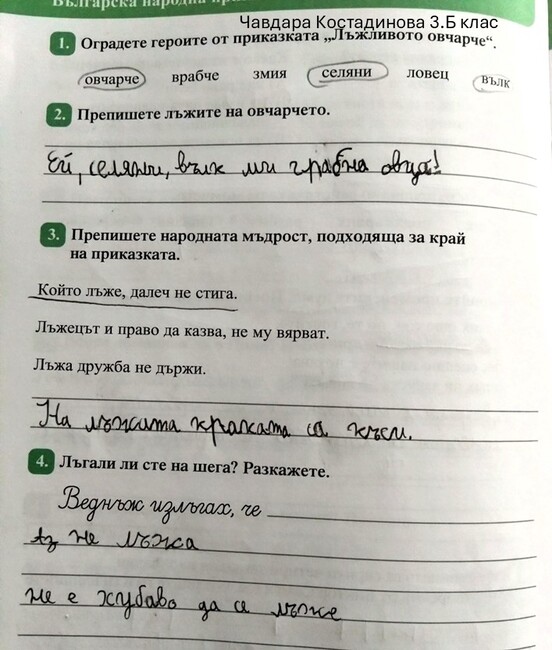 Българска народна
Чавдара Костадинова 3.Б клас
1. Оградете героите от приказката „Лъжливото овчарче“.
овчарче врабче змия селяни ловец вълк
2. Препишете лъжите на овчарчето.
Ей, селяни, вълк ми грабна овца!
3. Препишете народната мъдрост, подходяща за край
на приказката.
Който лъже, далеч не стига.
Лъжецът и право да казва, не му вярват.
Лъжа дружба не държи.
На лъжата краката са къси.
4. Лъгали ли сте на шега? Разкажете.
Веднъж излъгах, че
Аз не лъжа
не е хубаво да се лъже